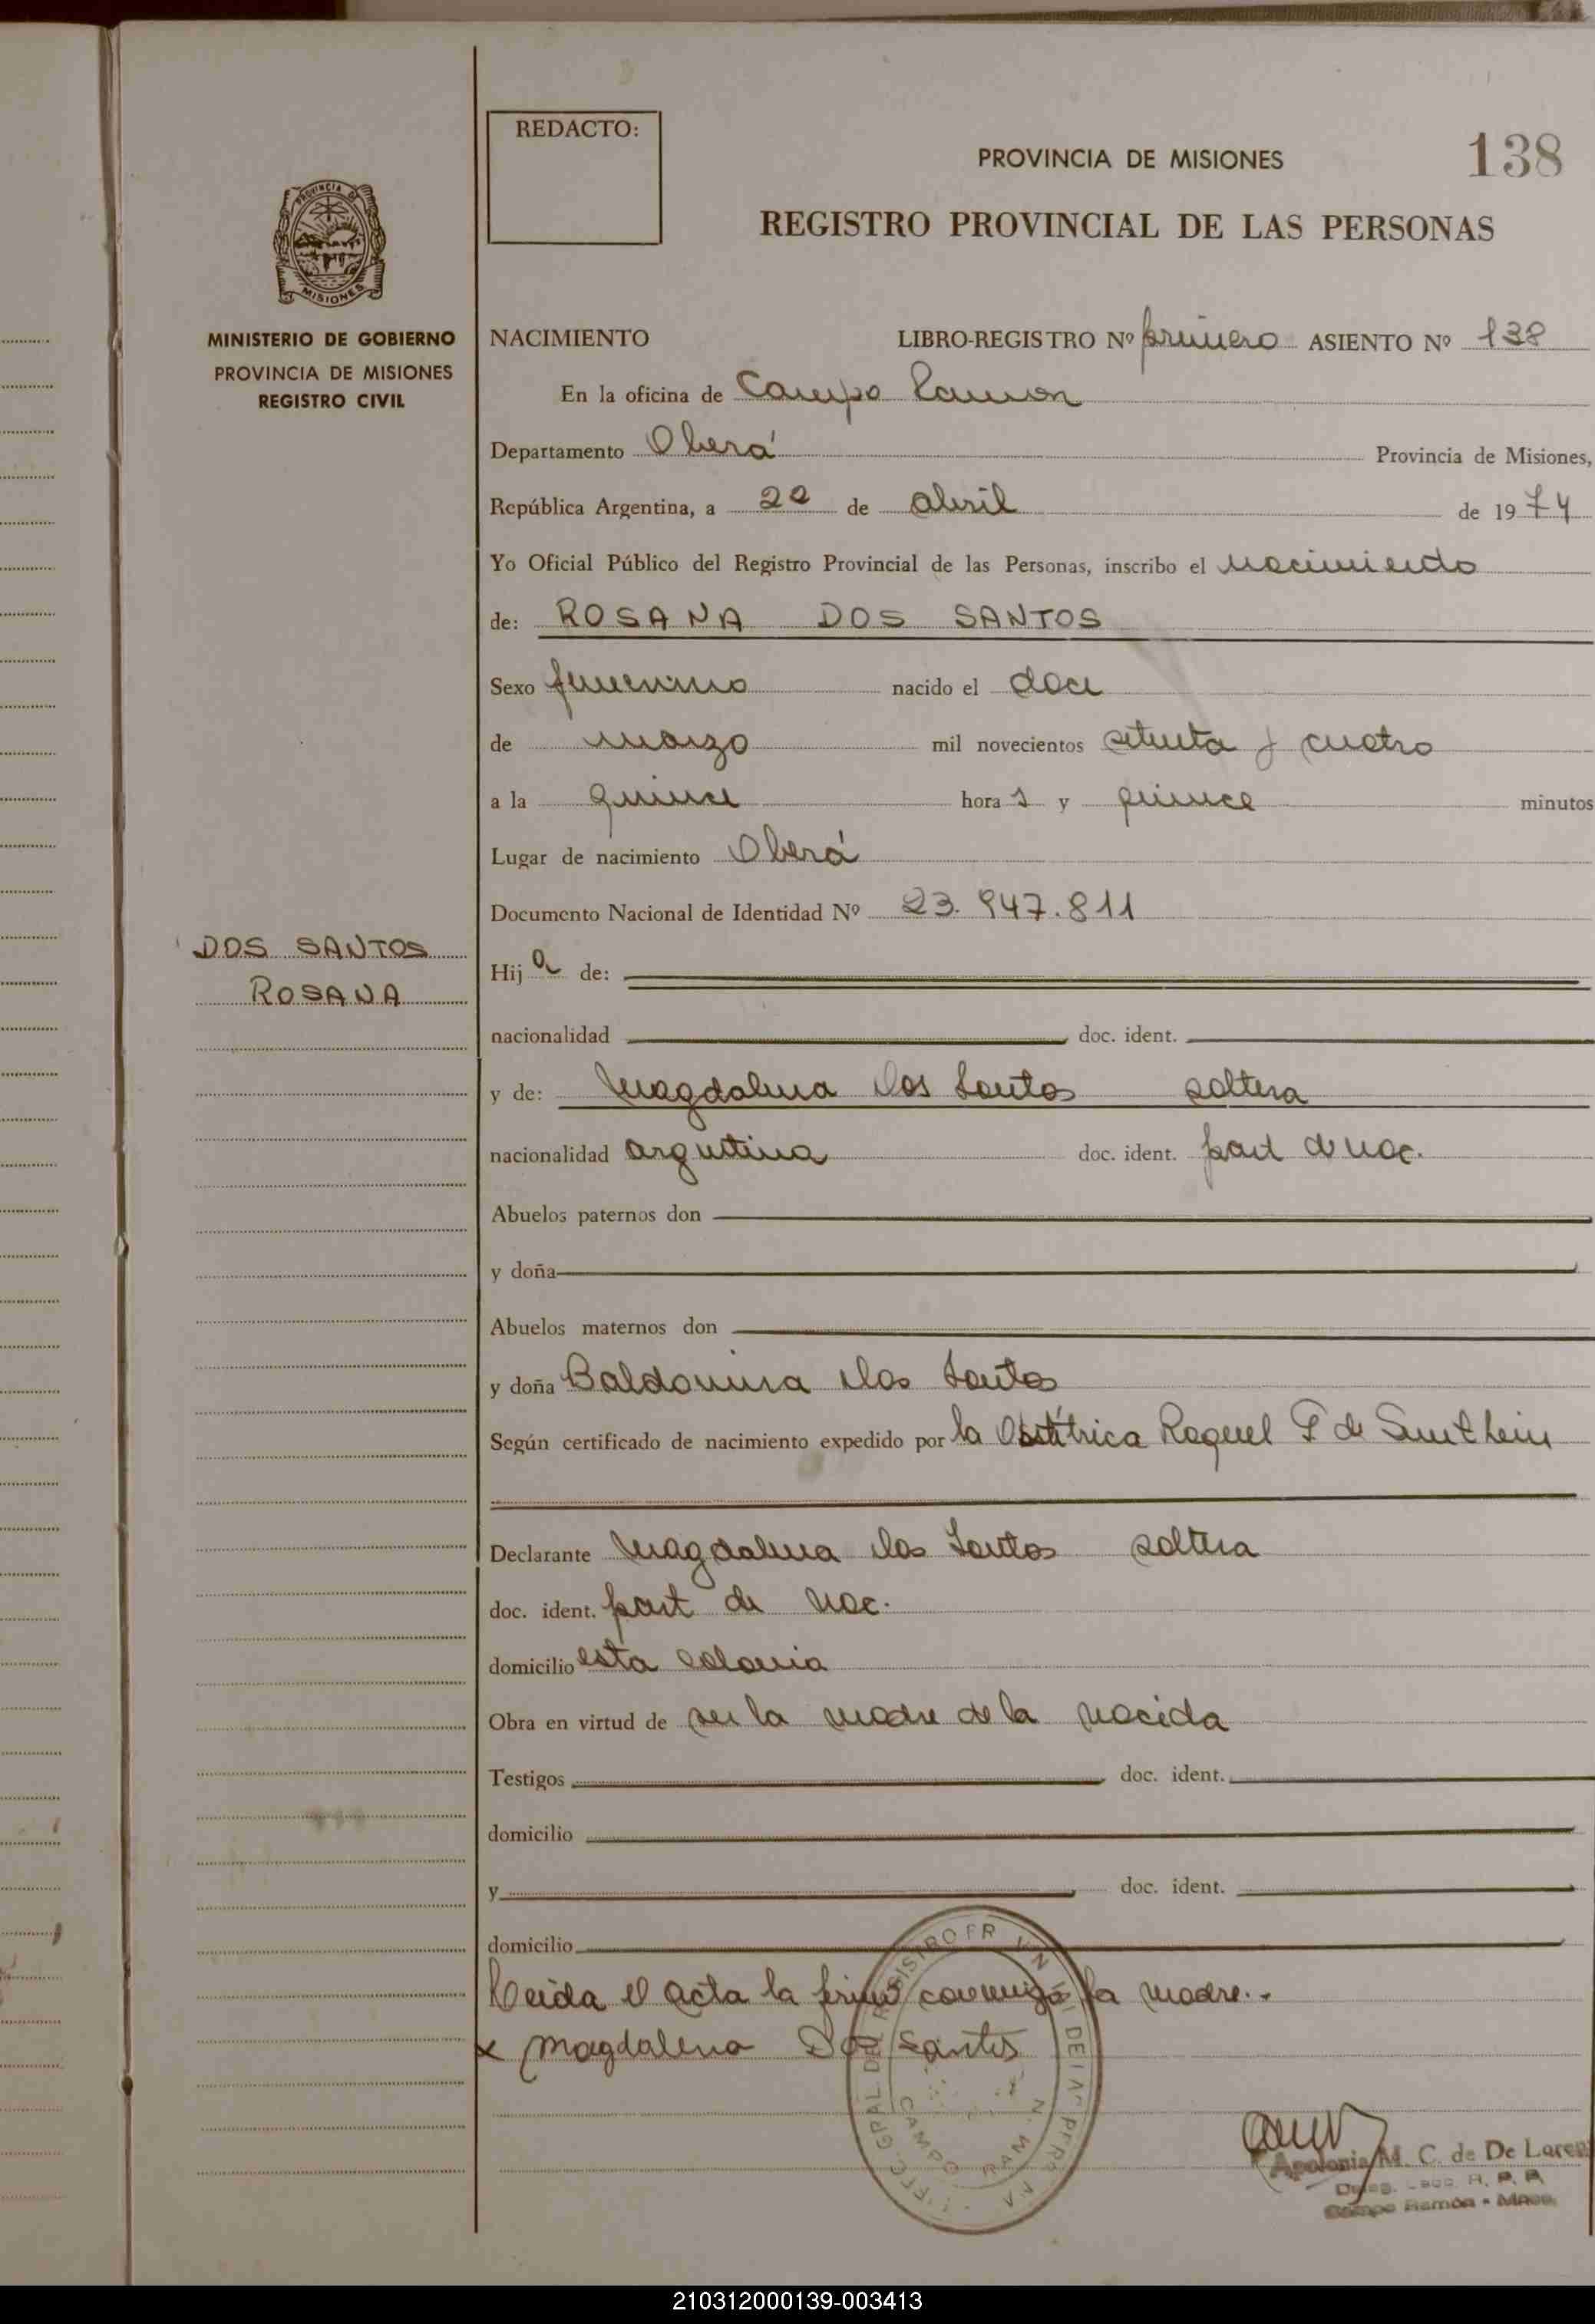 REDACTO:
PROVINCIA DE MISIONES
138
REGISTRO PROVINCIAL DE LAS PERSONAS
PROVINCIA DE
MISIONES
MINISTERIO DE GOBIERNO
PROVINCIA DE MISIONES
REGISTRO CIVIL
NACIMIENTO LIBRO-REGISTRO Nº primero ASIENTO Nº 138
En la oficina de Campo Ramon
Departamento Oberá Provincia de Misiones,
República Argentina, a 20 de abril de 1974
Yo Oficial Público del Registro Provincial de las Personas, inscribo el nacimiento
de: ROSANA DOS SANTOS
Sexo femenino nacido el doce
de marzo mil novecientos setenta y cuatro
a la quince hora s y quince minutos
Lugar de nacimiento Oberá
Documento Nacional de Identidad Nº 23.947.811
DOS SANTOS
ROSANA
Hij a de:
nacionalidad doc. ident.
y de: Magdalena dos Santos soltera
nacionalidad argentina doc. ident. part de nac.
Abuelos paternos don
y doña
Abuelos maternos don
y doña Baldomina dos Santos
Según certificado de nacimiento expedido por la Obstétrica Raquel de
Declarante Magdalena dos Santos soltera
doc. ident. part de nac.
domicilio esta colonia
Obra en virtud de ser la madre de la nacida
Testigos doc. ident.
domicilio
y doc. ident.
domicilio
Leida el acta la firma conmigo la madre.-
x Magdalena Dos Santos
CAMPO RAMON
Apolonia M. C. de De
R. P. P.
Campo Ramón - Mnes.
210312000139-003413